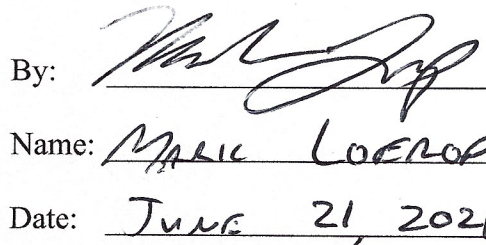 By:
Name: MARK LOEROP
Date: JUNE 21, 2021